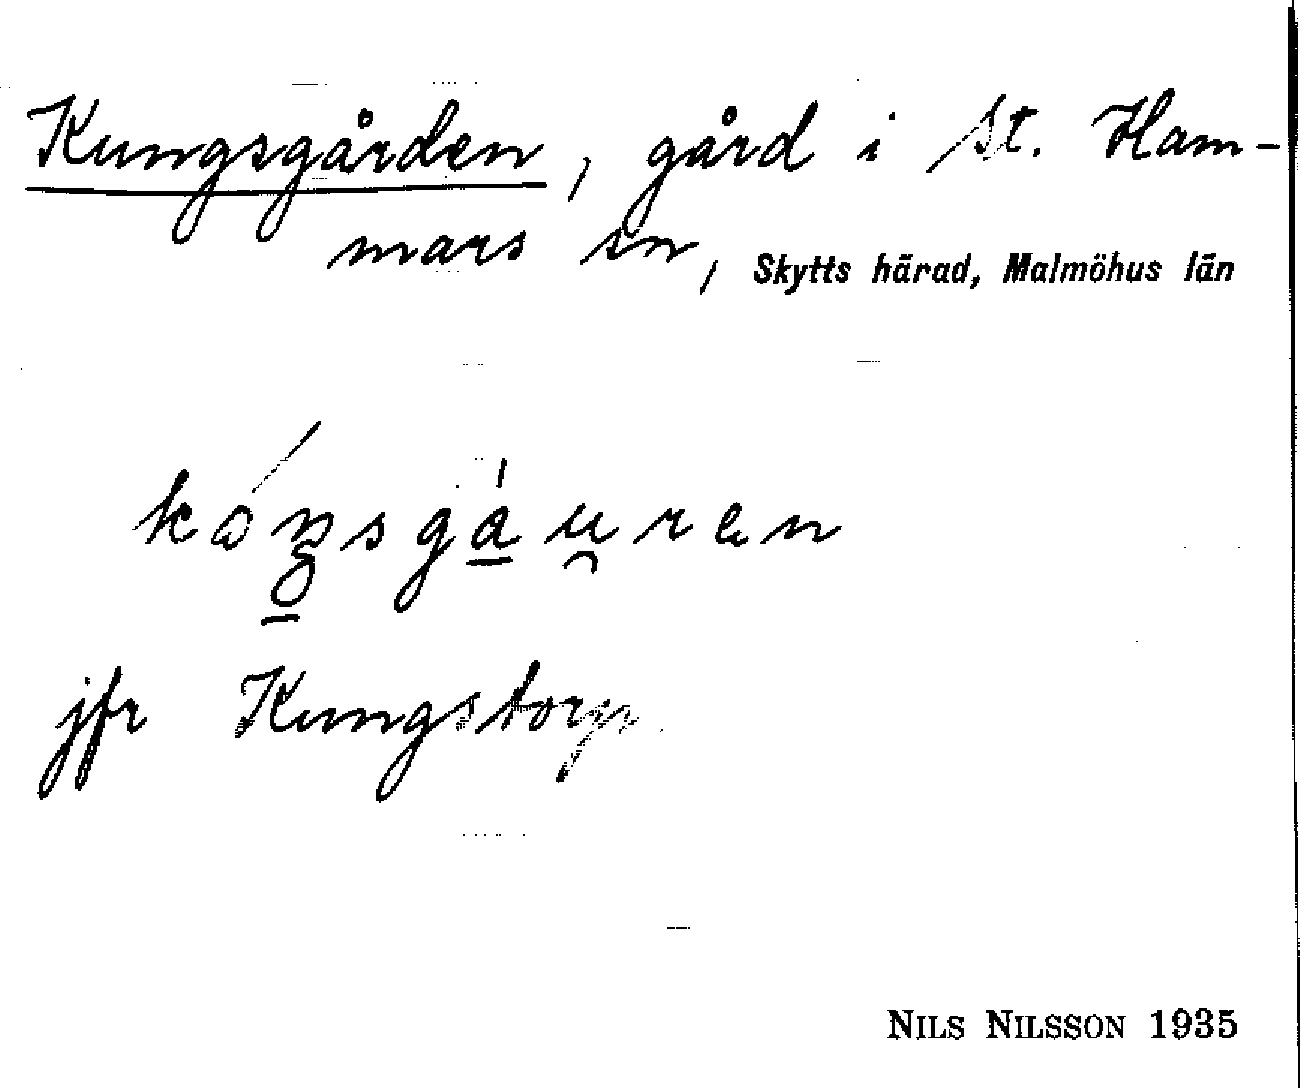 Kungsgården, gård i St. Ham-
mars sn, Skytts härad, Malmöhus län
kóŋsgáu̯ren
jfr Kungstorp
NILS NILSSON 1935